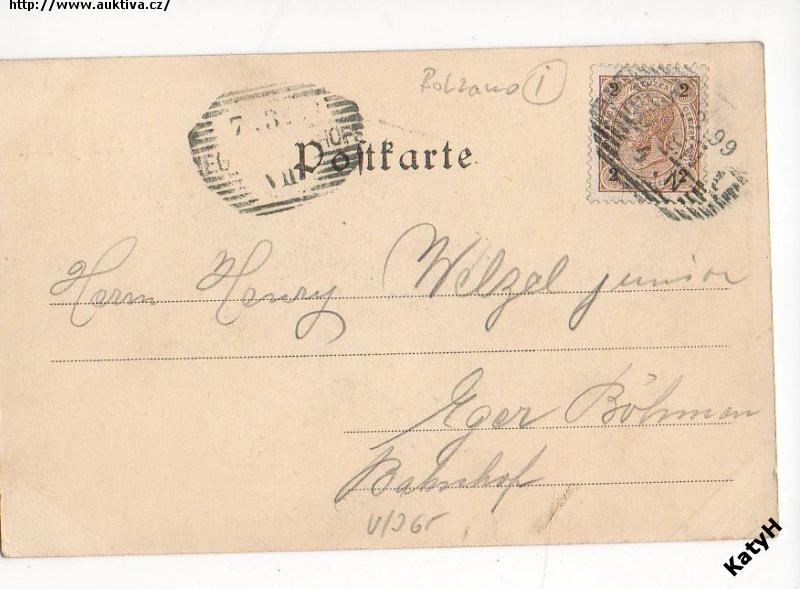 http://www.auktiva.cz/
Bolzano I
2 2
2 2
99
7 . 3
VII
Postkarte
Herrn Henry Wilzel junior
Eger Böhmen
Bahnhof
V/265
KatyH